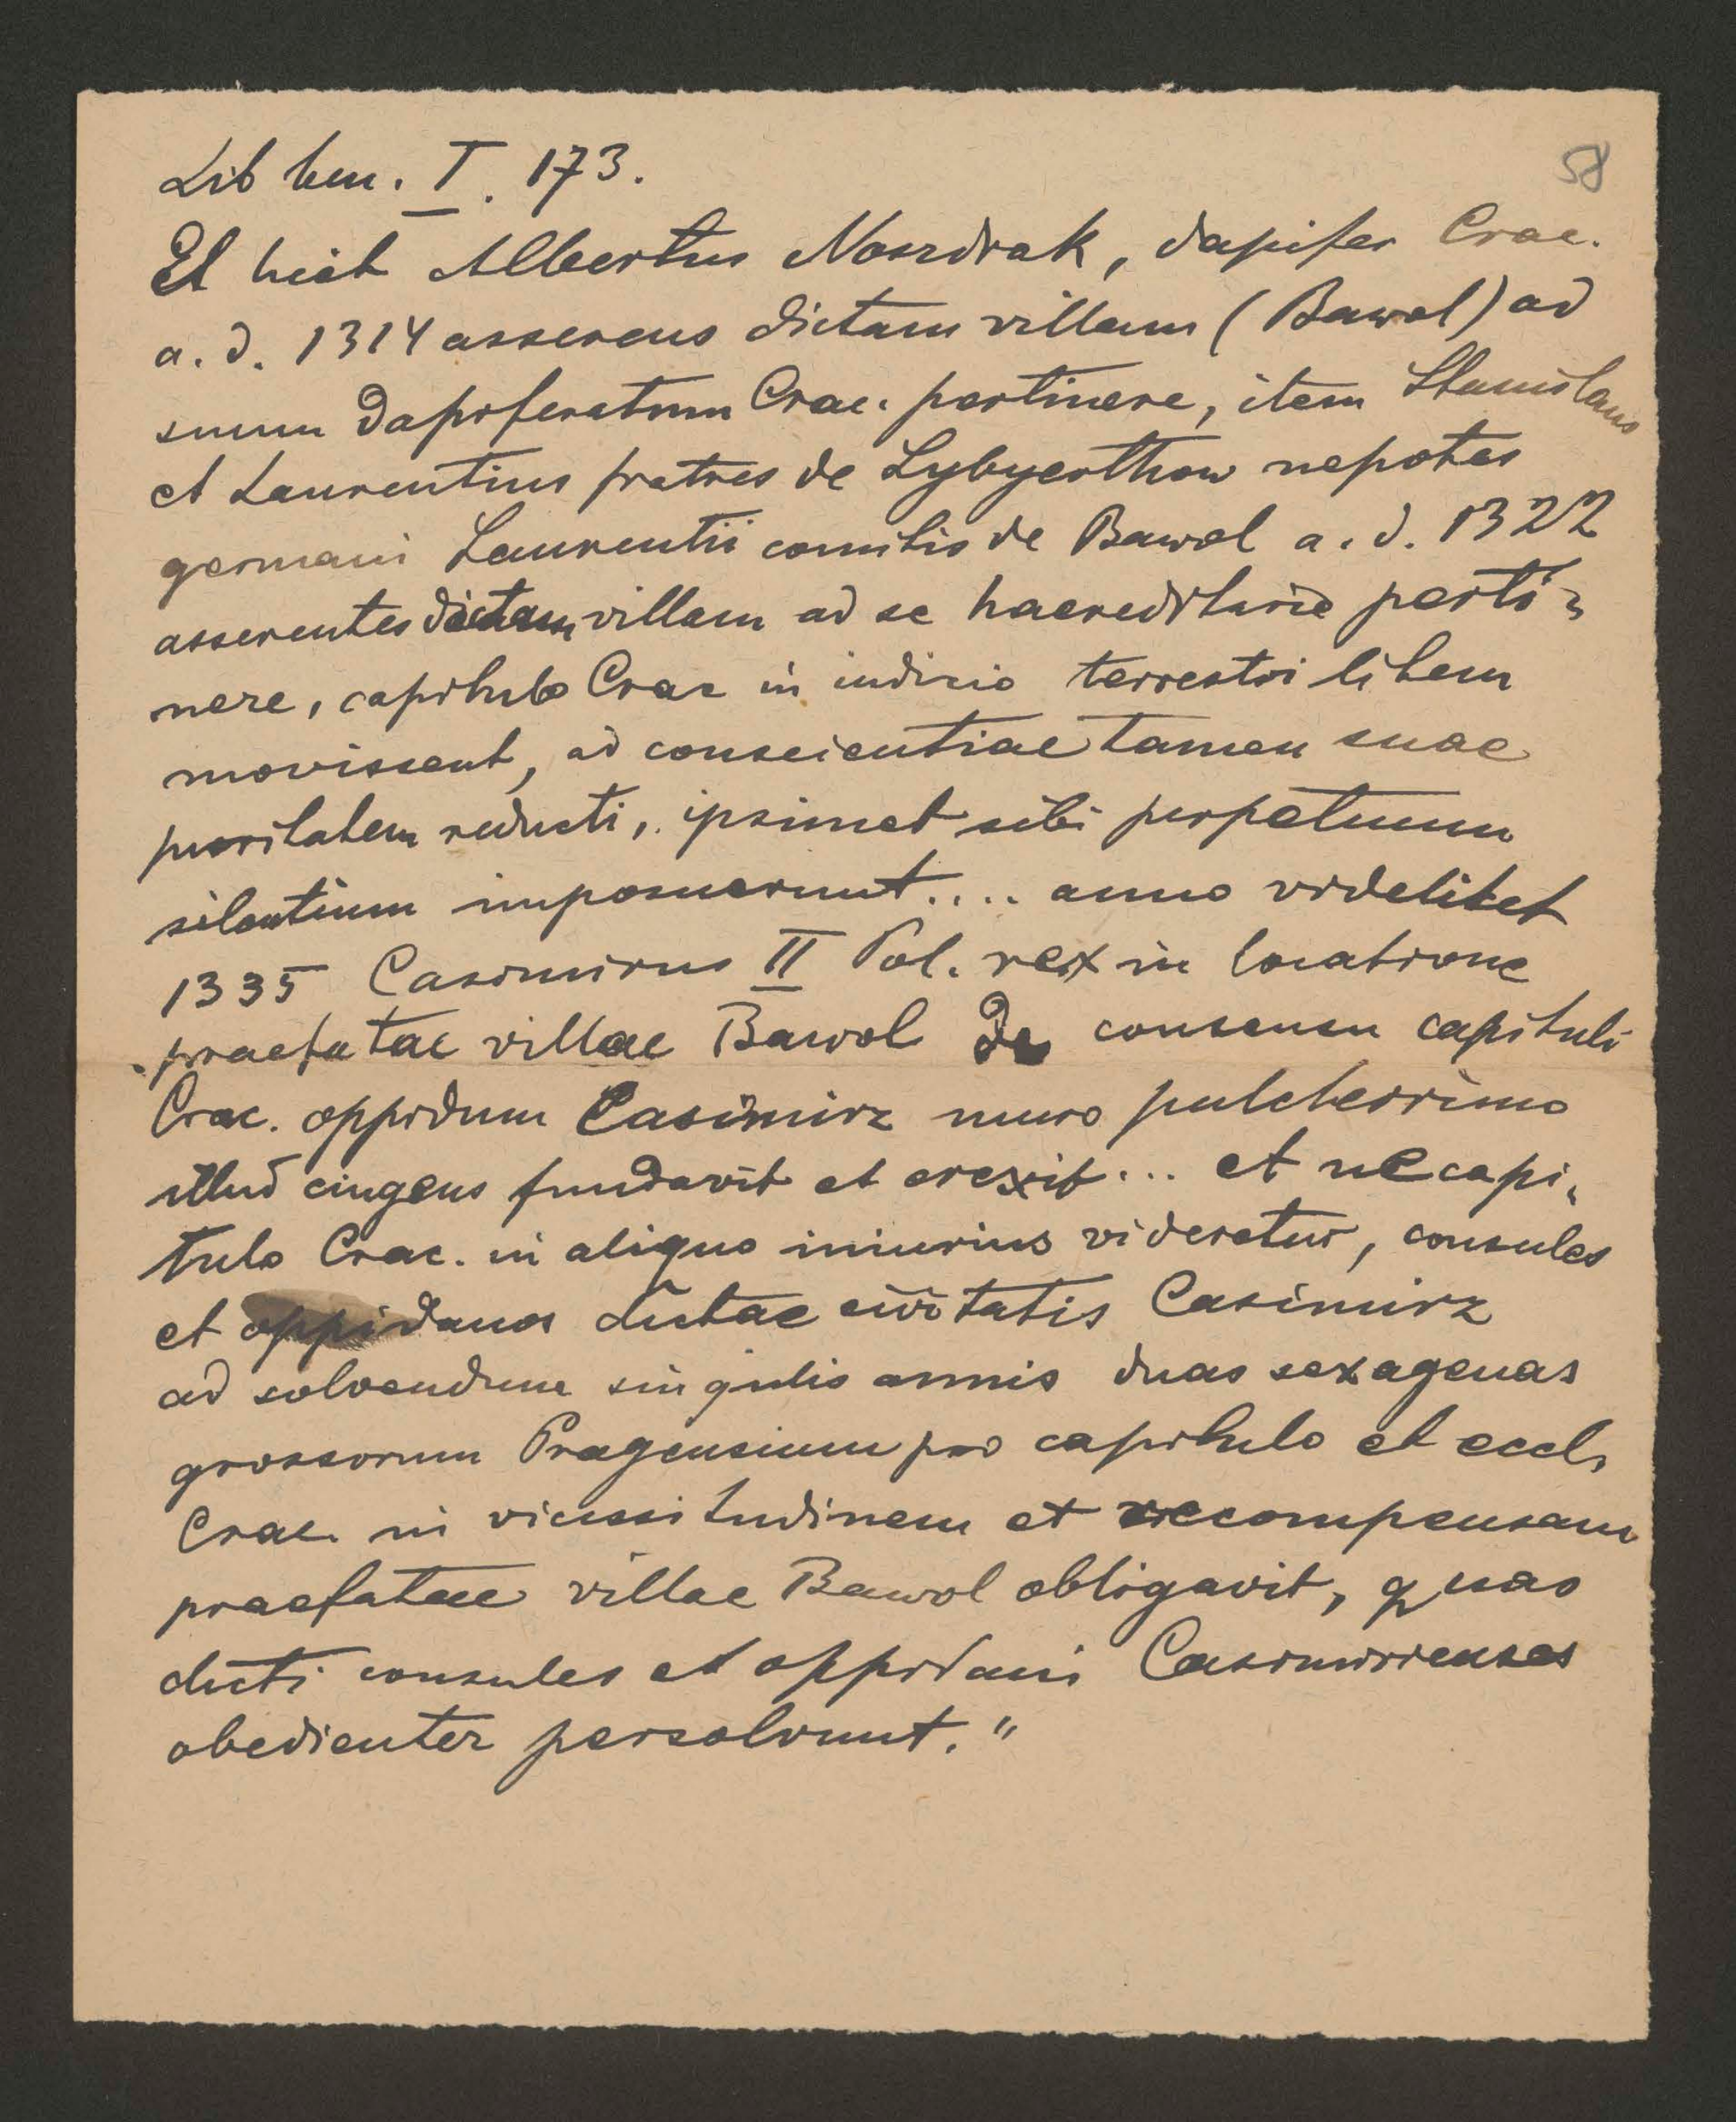 Lib ben. I. 173.
58
Et licet Albertus Noszdrak, dapifer Crac.
a. d. 1314 asserens dictam villam (Bawol) ad
suum dapiferatum Crac. pertinere, item Stanislaus
et Laurentius fratres de Lybyerthow nepotes
germani Laurentii comitis de Bawol a. d. 1322
asserentes dictam villam ad se haereditarie perti-
nere, capitulo Crac in iudicio terrestri litem
movissent, ad conscientiae tamen suae
puritatem reducti, ipsimet sibi perpetuum
silentium imposuerunt .... anno videlicet
1335 Casimirus II Pol. rex in locatione
praefatae villae Bawol de consensu capituli
Crac. oppidum Casimirz muro pulcherrimo
illud cingens fundavit et erexit ... et ne capi-
tulo Crac. in aliquo iniurius videretur, consules
et oppidanos dictae civitatis Casimirz
ad solvendum singulis annis duas sexagenas
grossorum Pragensium pro capitulo et eccl.
Crac. in vicissitudinem et recompensam
praefatae villae Bawol obligavit, quas
dicti consules et oppidani Casimirienses
obedienter persolvunt."